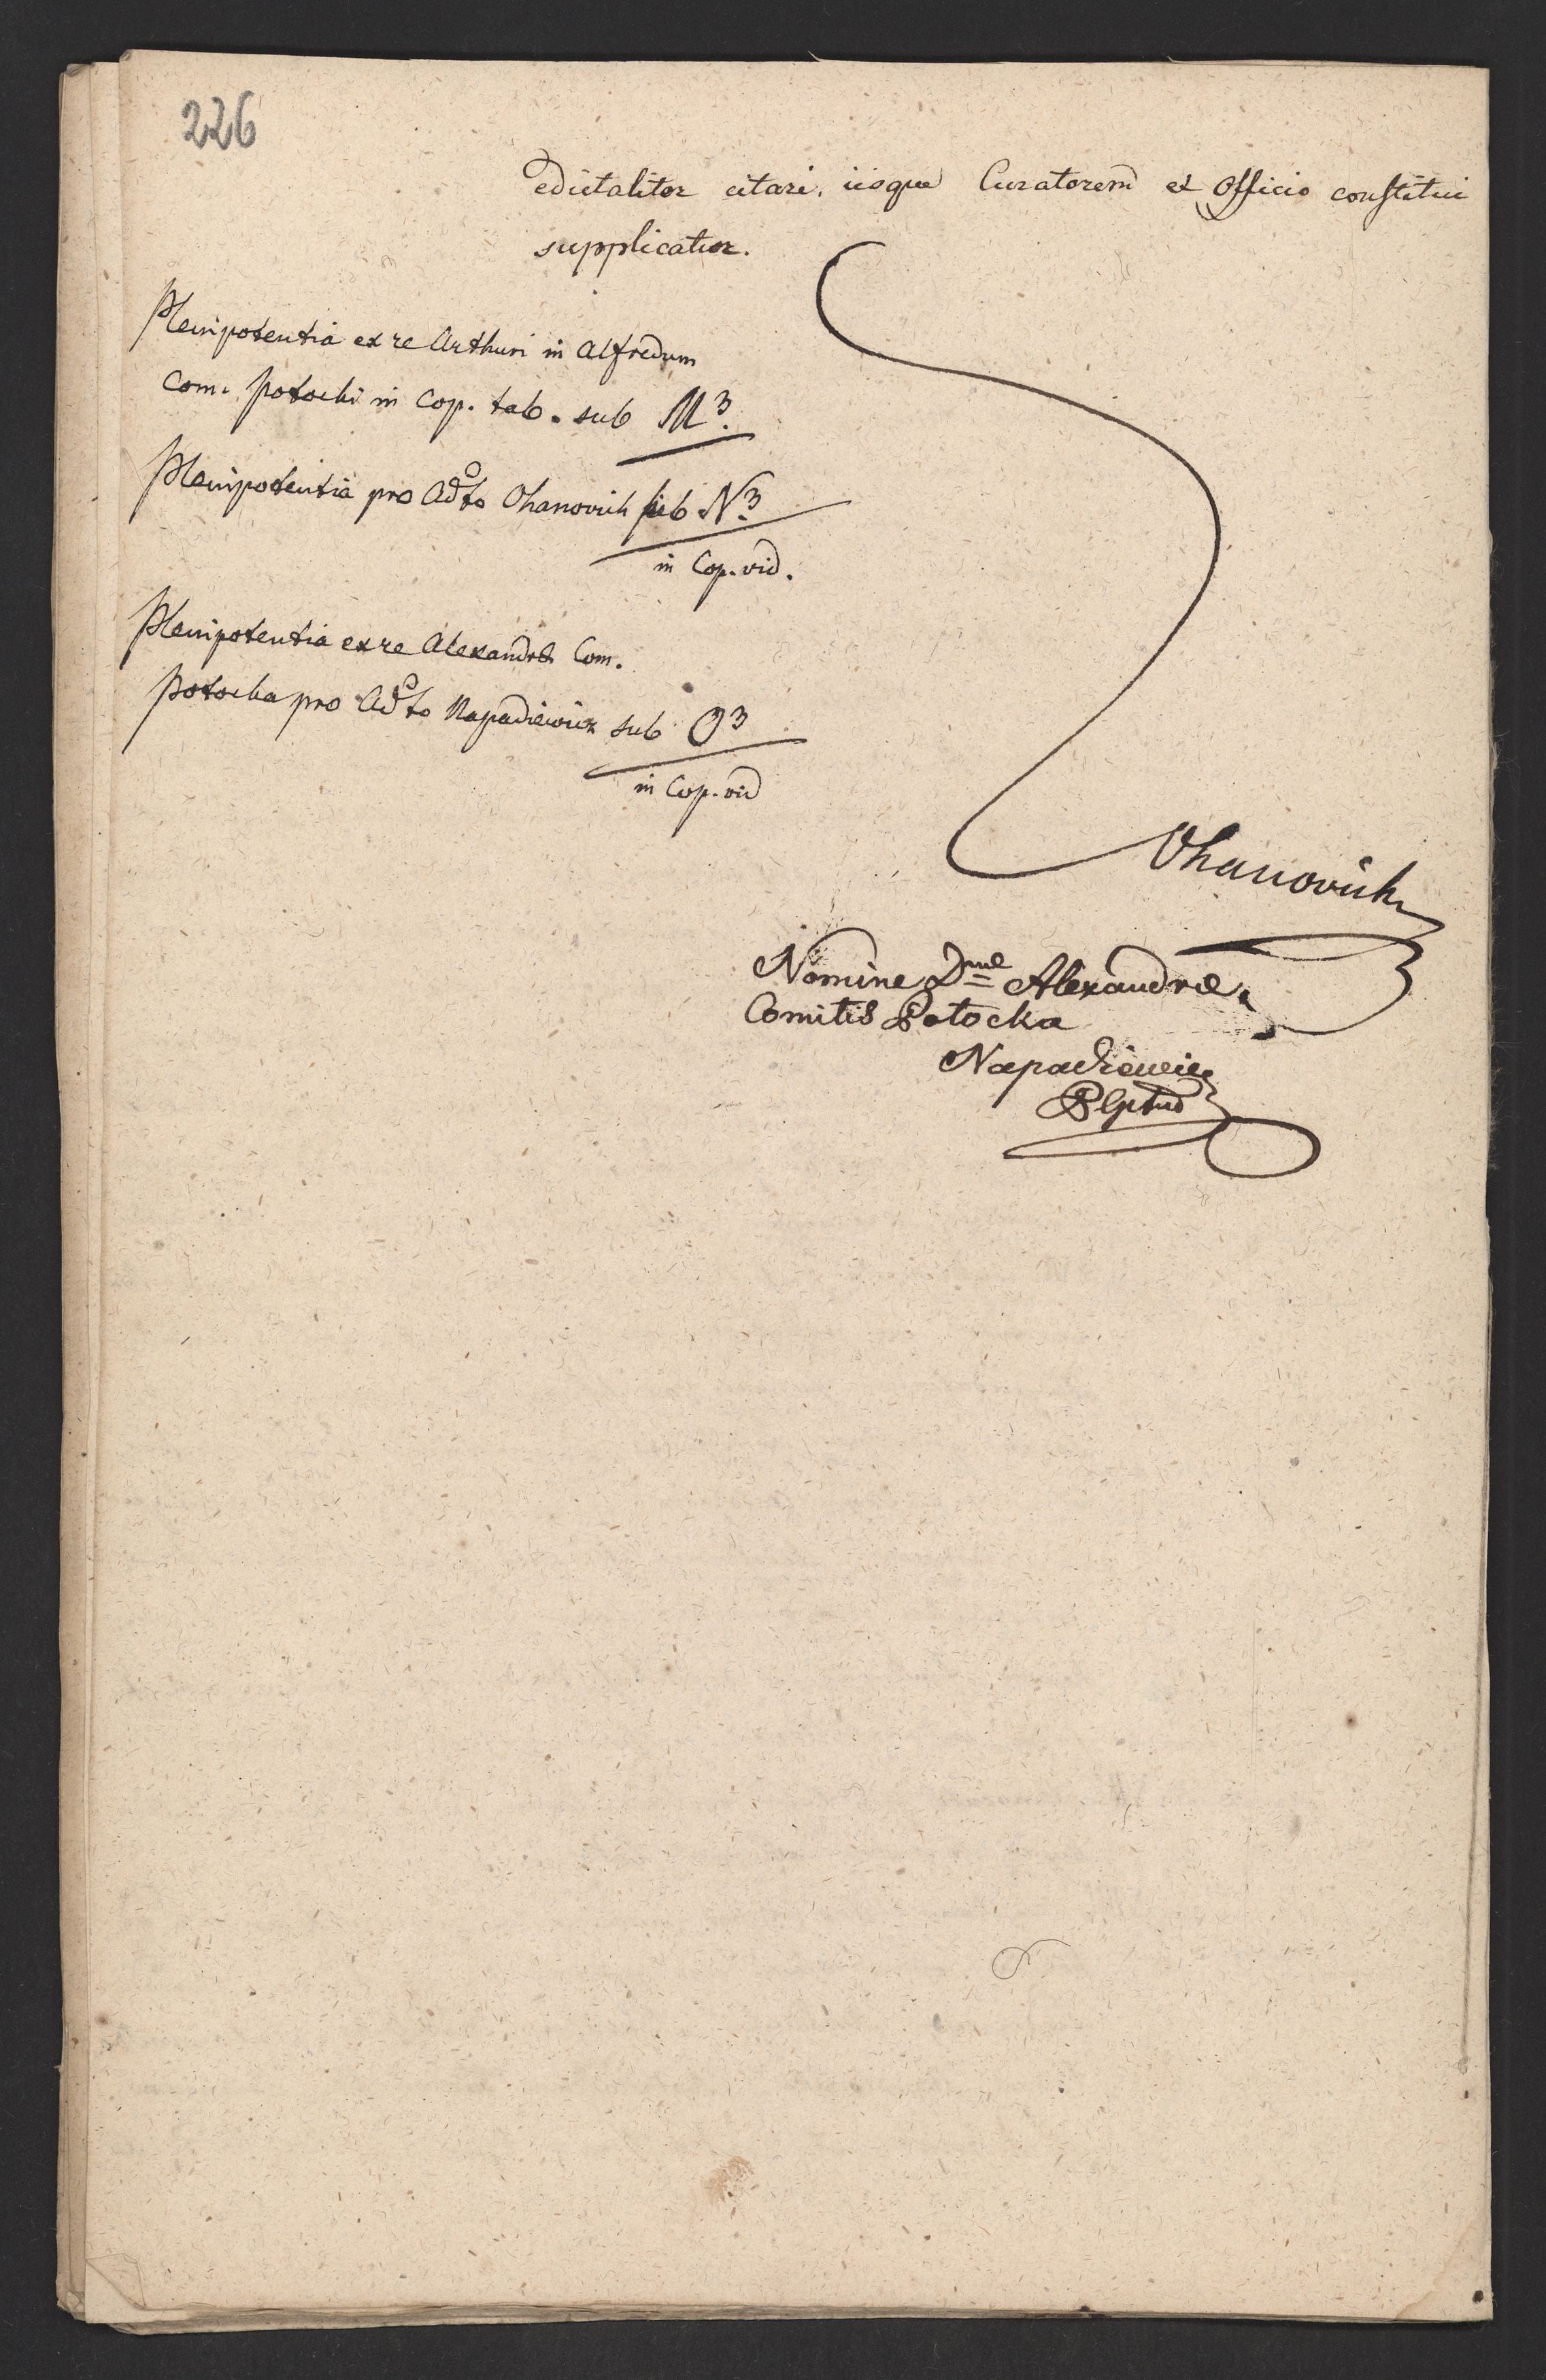 226
edictaliter citari, iisque Curatorem ex Officio constitui
supplicatur.
Plenipotentia ex re Arthuri in Alfredum
Com. Potocki in Cop. tab. sub M3.
Plenipotentia pro Adto Ohanovich sub N3.
in Cop. vid.
Plenipotentia ex re Alexandrae Com.
Potocka pro Adto Napadiewicz sub O3
in Cop. vid
Ohanovich
Nomine Dnae Alexandrae
Comitis Potocka
Napadiewicz